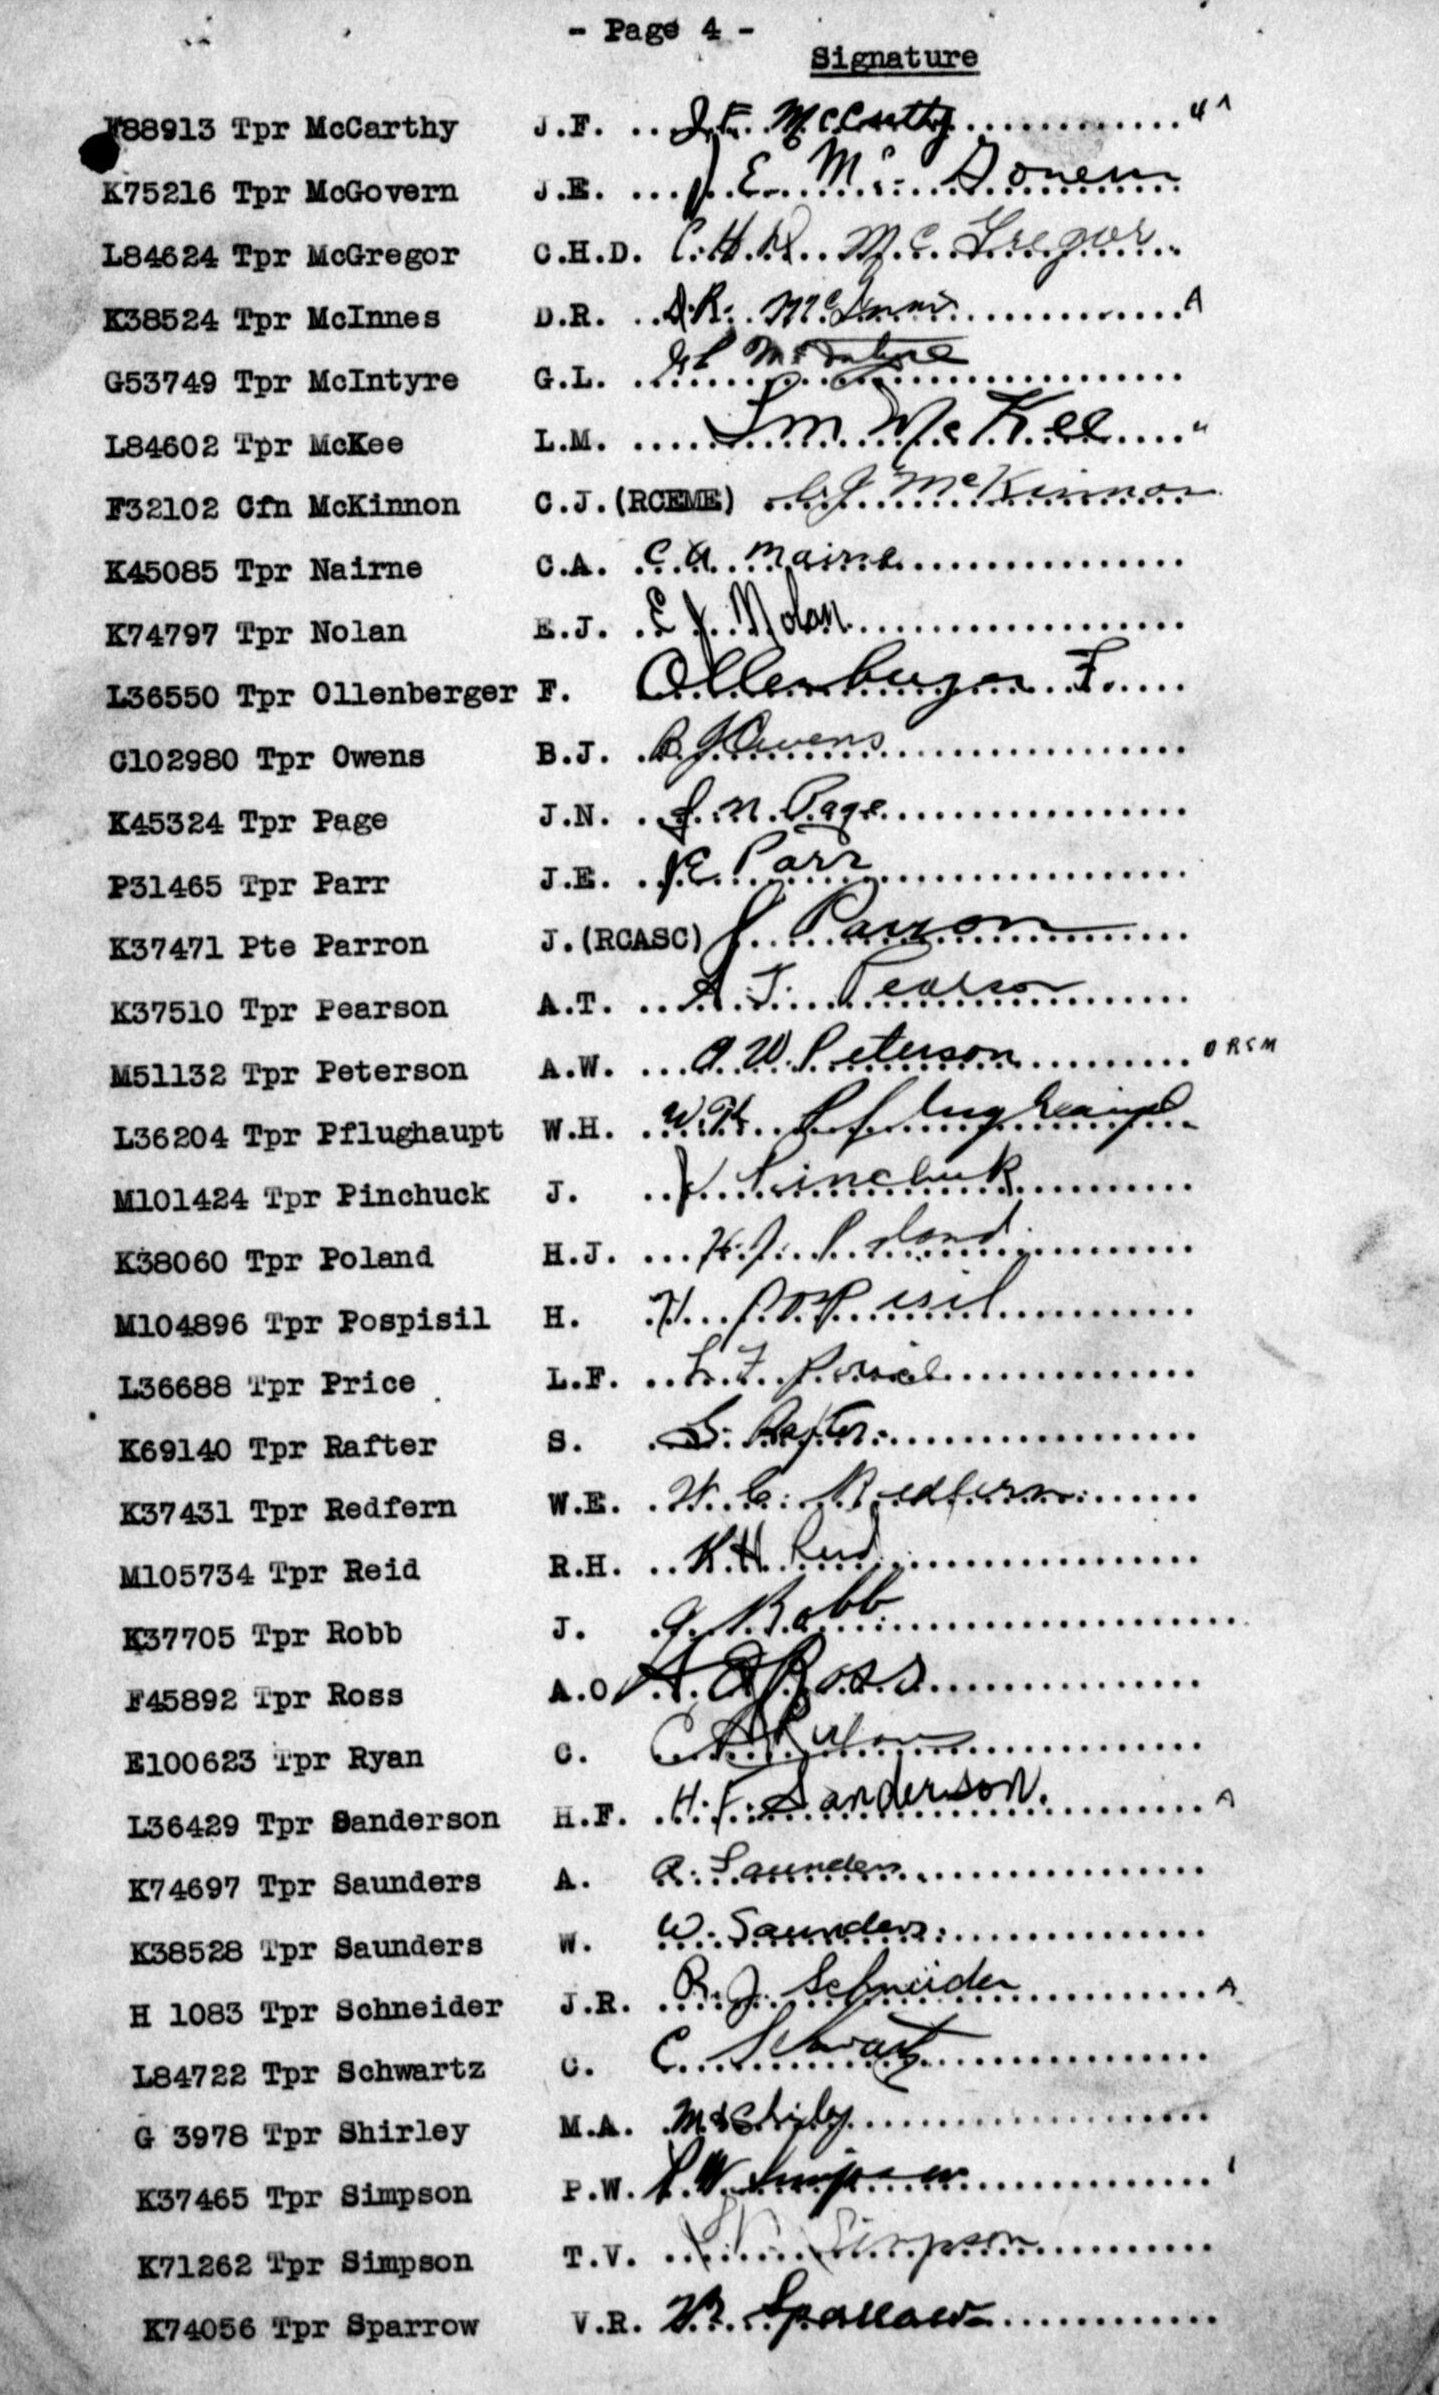 - Page 4 -
Signature
F88913 Tpr McCarthy J.F. .. J.F. McCarthy ............
K75216 Tpr McGovern J.E. ... J.E. Mc
L84624 Tpr McGregor C.H.D. C.H.D. McGregor
K38524 Tpr McInnes D.R. .. D.R. McInnis ............ A
G53749 Tpr McIntyre G.L. G L McIntyre
L84602 Tpr McKee L.M. .... L M McKee .... "
F32102 Cfn McKinnon C.J.(RCEME) C.J. McKinnon
K45085 Tpr Nairne C.A. C.A. Nairne
K74797 Tpr Nolan E.J. E J Nolan
L36550 Tpr Ollenberger F. Ollenberger F.
C102980 Tpr Owens B.J. B J Owens
K45324 Tpr Page J.N. J.N. Page
P31465 Tpr Parr J.E. J E Parr
K37471 Pte Parron J.(RCASC) J. Parron
K37510 Tpr Pearson A.T. A.T. Pearson
M51132 Tpr Peterson A.W. A.W. Peterson
L36204 Tpr Pflughaupt W.H. W.H. Pflughaupt
M101424 Tpr Pinchuck J. J. Pinchuk
K38060 Tpr Poland H.J. H.J. Poland
M104896 Tpr Pospisil H. H. Pospisil
L36688 Tpr Price L.F. L.F. Price
K69140 Tpr Rafter S. S. Rafter
K37431 Tpr Redfern W.E. W.E. Redfern
M105734 Tpr Reid R.H. R.H. Reid
K37705 Tpr Robb J. J. Robb
F45892 Tpr Ross A.O A.O Ross
E100623 Tpr Ryan C.
L36429 Tpr Sanderson H.F. H.F. Sanderson. A
K74697 Tpr Saunders A. A. Saunders
K38528 Tpr Saunders W. W. Saunders
H 1083 Tpr Schneider J.R. R.J. Schneider A
L84722 Tpr Schwartz C. C. Schwartz
G 3978 Tpr Shirley M.A. M A Shirley
K37465 Tpr Simpson P.W. P.W. Simpson
K71262 Tpr Simpson T.V. Simpson
K74056 Tpr Sparrow V.R. V.R. Sparrow